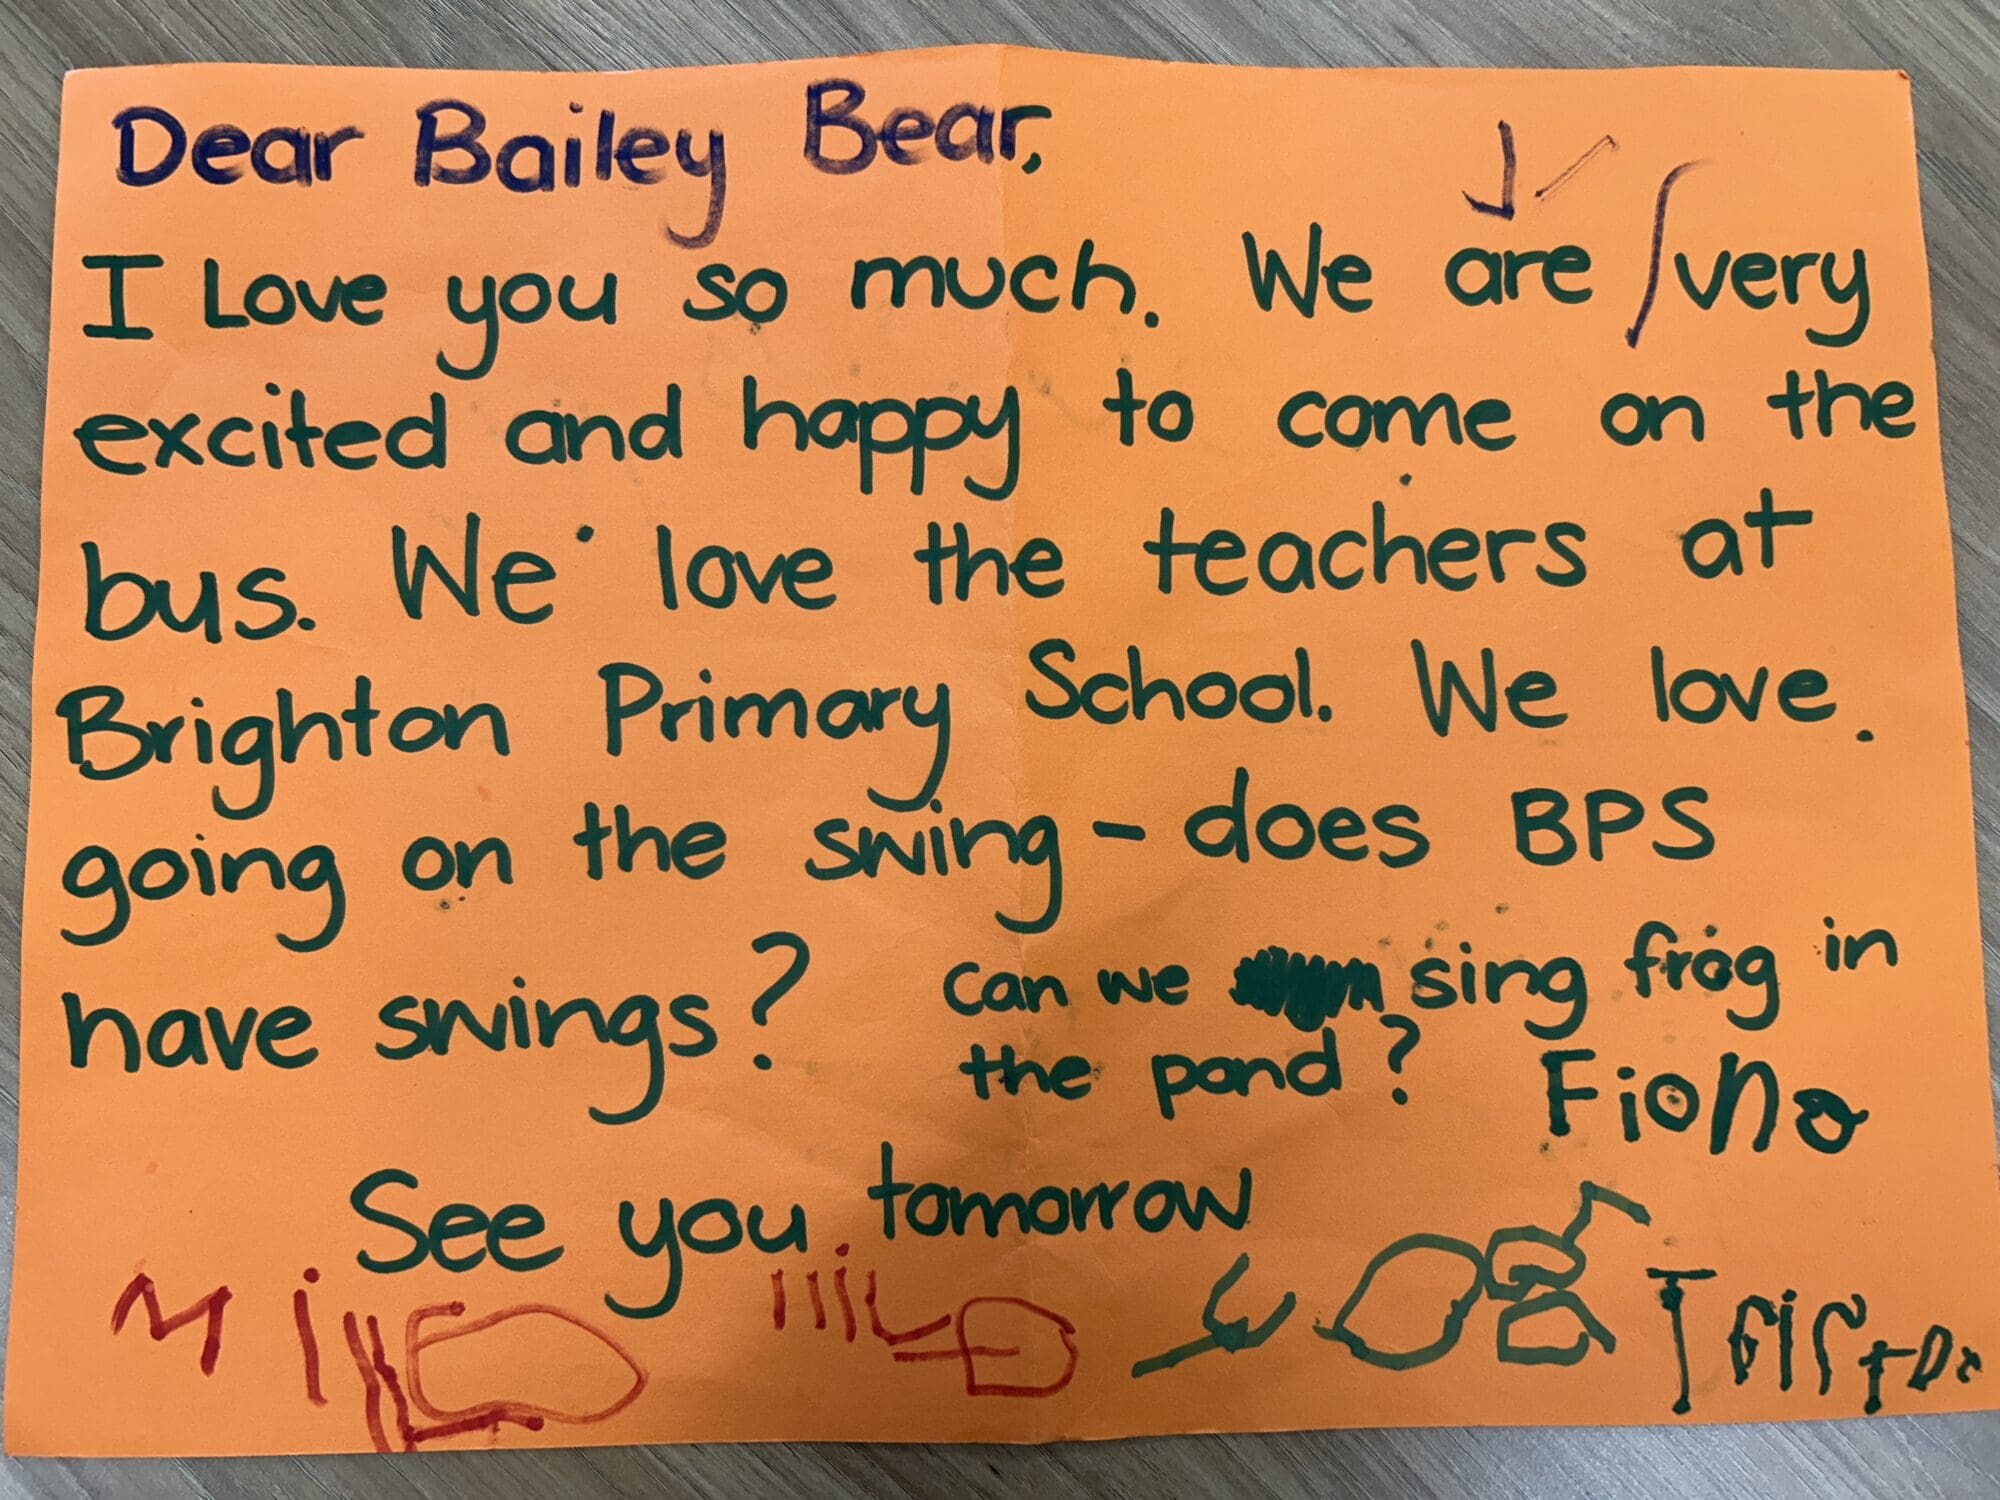 Dear Bailey Bear,
I Love you so much. We are very
excited and happy to come on the
bus. We love the teachers at
Brighton Primary School. We love.
going on the swing - does BPS
have swings? can we sing frog in
the pond?
Fiona
See you tomorrow